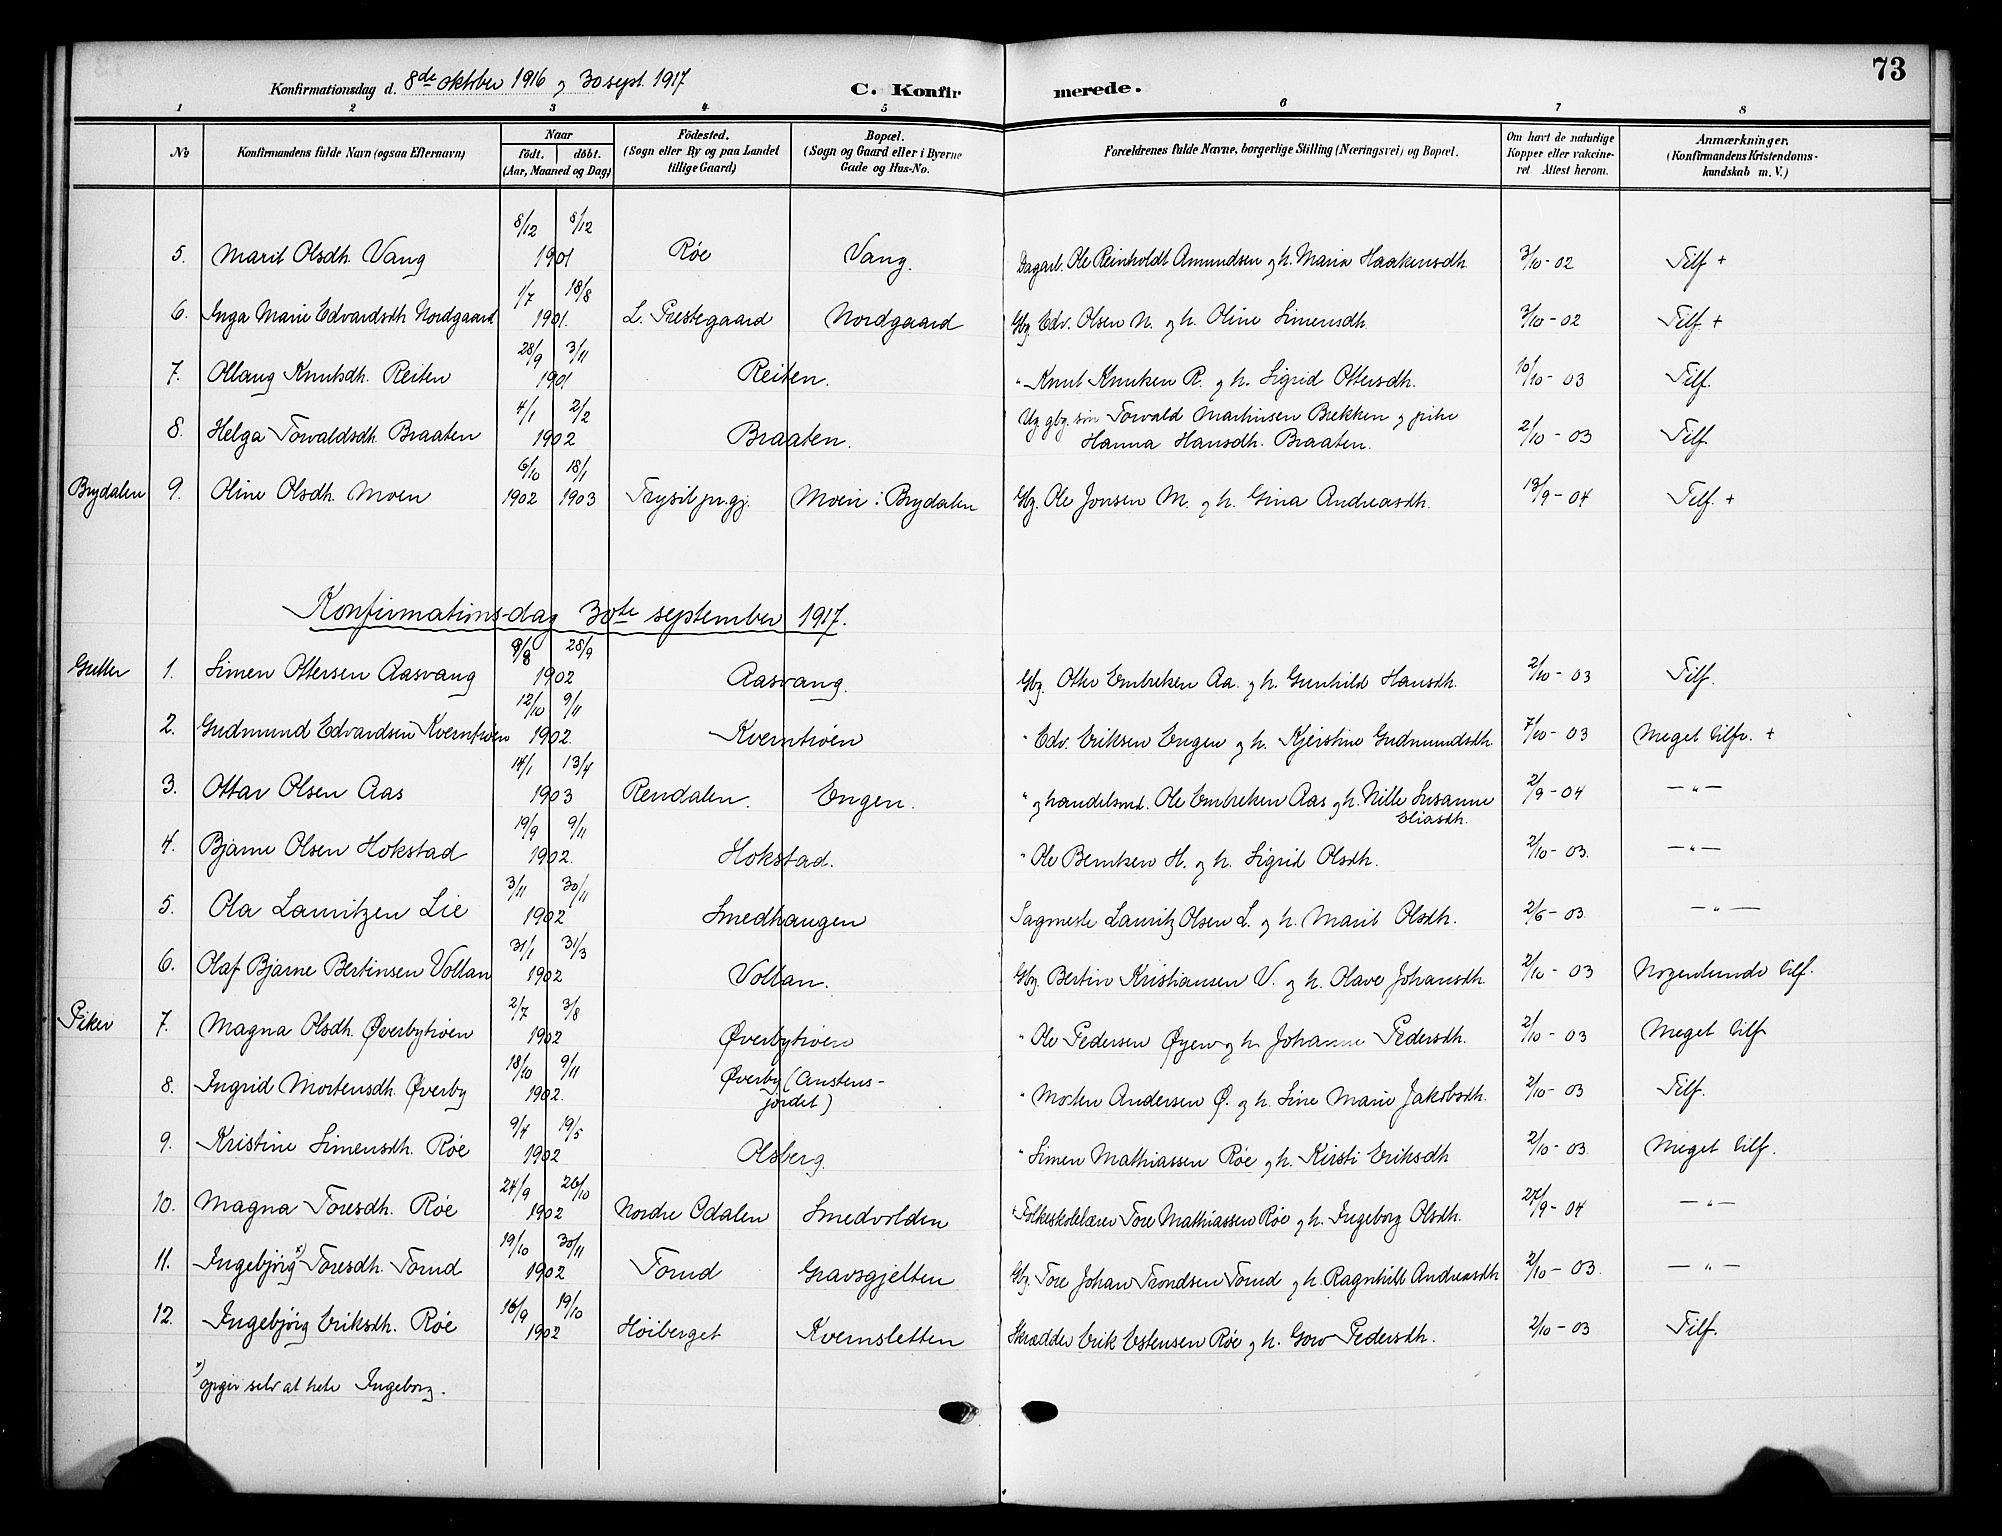 73
Konfirmationsdag d. 8de oktober 1916 og 30 sept. 1917
C. Konfirmerede.
1 2 3 4 5 6 7 8
No Konfirmandens fulde Navn (ogsaa Efternavn) Naar født. døbt. (Aar, Maaned og Dag) Fødested. (Sogn eller By og paa Landet tillige Gaard) Bopæl. (Sogn og Gaard eller i Byerne Gade og Hus-No. Forældrenes fulde Navne, borgerlige Stilling (Næringsvei) og Bopæl. Om havt de naturlige Kopper eller vakcineret Attest herom. Anmærkninger. (Konfirmandens Kristendomskundskab m. V.)
5. Marit Olsdh. Vang 8/12 8/12 1901 Røe Vang. Dagarb. Ole Reinholdt Amundsen og h. Maria Haakensdh. 3/10 - 02 Tilf +
6. Inga Marie Edvardsdh Nordgaard 1/7 18/8 1901. L. Prestegaard Nordgaard Gbg. Edv. Olsen N. og h. Oline Simensdh. 3/10 - 02 Tilf. +
7. Ollaug Knutsdh. Reiten 28/9 3/11 1901 Reiten. " Knut Knutsen R. og h. Sigrid Ottersdh. 10/10 - 03 Tilf.
8. Helga Torvaldsdh. Braaten 4/1 2/2 1902 Braaten. Ug gbg. søn Torvald Martinsen Brekken og pike
Hanna Hansdh. Braaten. 2/10 - 03 Tilf.
Brydalen 9. Oline Olsdh. Moen 6/10 1902 18/1 1903 Trysil pr.gj. Moen i Brydalen Gbg. Ole Jonsen M. og h. Gina Andreasdh. 13/9 - 04 Tilf. +
Konfirmations-dag 30te september 1917.
Gutter 1. Simen Ottersen Aasvang 9/8 28/9 1902 Aasvang. Gbg. Otter Embretsen Aa. og h. Gunhild Hansdh. 2/10 - 03 Tilf.
2. Gudmund Edvardsen Kverntrøen 12/10 9/11 1902. Kverntrøen " Edv. Eriksen Engen og h. Kjerstine Gudmundsdh. 7/10 - 03 Meget tilfr. +
3. Ottar Olsen Aas 14/1 13/4 1903 Rendalen. Engen. " og handelsmd. Ole Embretsen Aas og h. Nille Susanne
Eliasdh. 2/9 - 04 — " —
4. Bjarne Olsen Hokstad 19/9 9/11 1902. Hokstad. " Ole Berntsen H. og h. Sigrid Olsdh. 2/10 - 03. — " —
5. Ola Lauritzen Lie 3/11 30/11 1902 Smedhaugen Sagmester Lauritz Olsen L. og h. Marit Olsdh. 2/6 - 03. — " —
6. Olaf Bjarne Bertinsen Vollan 31/1 31/3 1902 Vollan. Gbg. Bertin Kristiansen V. og h. Olave Johansdh. 2/10 - 03 Nogenlunde tilf.
Piker 7. Magna Olsdh. Øverbytrøen 2/7 3/8 1902 Øverbytrøen " Ole Pedersen Øyen og h. Johanne Pedersdh. 2/10 - 03 Meget tilf
8. Ingrid Mortensdh. Øverby 18/10 9/11 1902. Øverby (Anstens-
jordet) " Morten Andersen Ø. og h. Sine Marie Jakobsdh. 2/10 - 03 Tilf.
9. Kristine Simensdh. Røe 9/4 19/5 1902 Olsberg. " Simen Mathiassen Røe og h. Kirsti Eriksdh 2/10 - 03. Meget tilf.
10. Magna Toresdh. Røe 24/9 26/10 1902 Nordre Odalen Smedvolden Folkeskolelærer Tore Mathiassen Røe og h. Ingeborg Olsdh. 27/9 - 04 — " —
11. Ingebjørg x) Toresdh. Tomd 19/10 30/11 1902 Tomd Gravsgjelten Gbg. Tore Johan Trondsen Tomd og h. Ragnhild Andreasdh 2/10 - 03. — " —
12. Ingebjørg Eriksdh. Røe 16/9 19/10 1902 Høiberget Kvernsletten Skrædder Erik Estensen Røe og h. Goro Pedersdh. 2/10 - 03 Tilf.
x) opgir selv at hete Ingeborg.